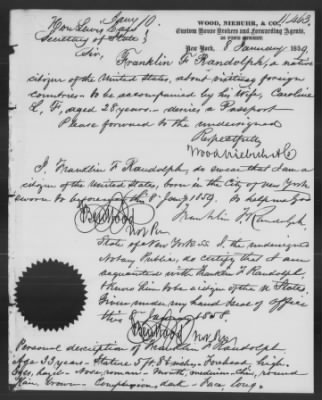 11,463
WOOD, NIEBUHR, & CO.
Custom House Brokers and Forwarding Agents,
New York, 8 January 1859.
Jany 10.
Hon Lewis Cass
Secretary of State
Sir,
Franklin F Randolph, a native
citizen of the United States, about visiting foreign
countries to be accompanied by his wife, Caroline
L. F., aged 28 years - desires a Passport
Please forward to the undersigned
Respectfully
Wood Niebuhr & Co
I, Franklin F Randolph, do swear that I am a
citizen of the United States, born in the City of New York
sworn to before me this 8 Jany 1859. So help me God
Franklin F Randolph.
Ben Wood
Not Pu
State of New York ss I, the undersigned
Notary Public, do certify that I am
acquainted with Franklin F Randolph,
& know him to be a citizen of the U States
Given under my hand & seal of office
this 8 Jany 1858.
Ben Wood
Not Pu
Personal description of Franklin F Randolph
Age 33 years - Stature 5 ft. 8 inches - Forehead, high -
Eyes, hazel - Nose, roman - Mouth, medium - Chin, round
Hair, brown - Complexion, dark - Face long.